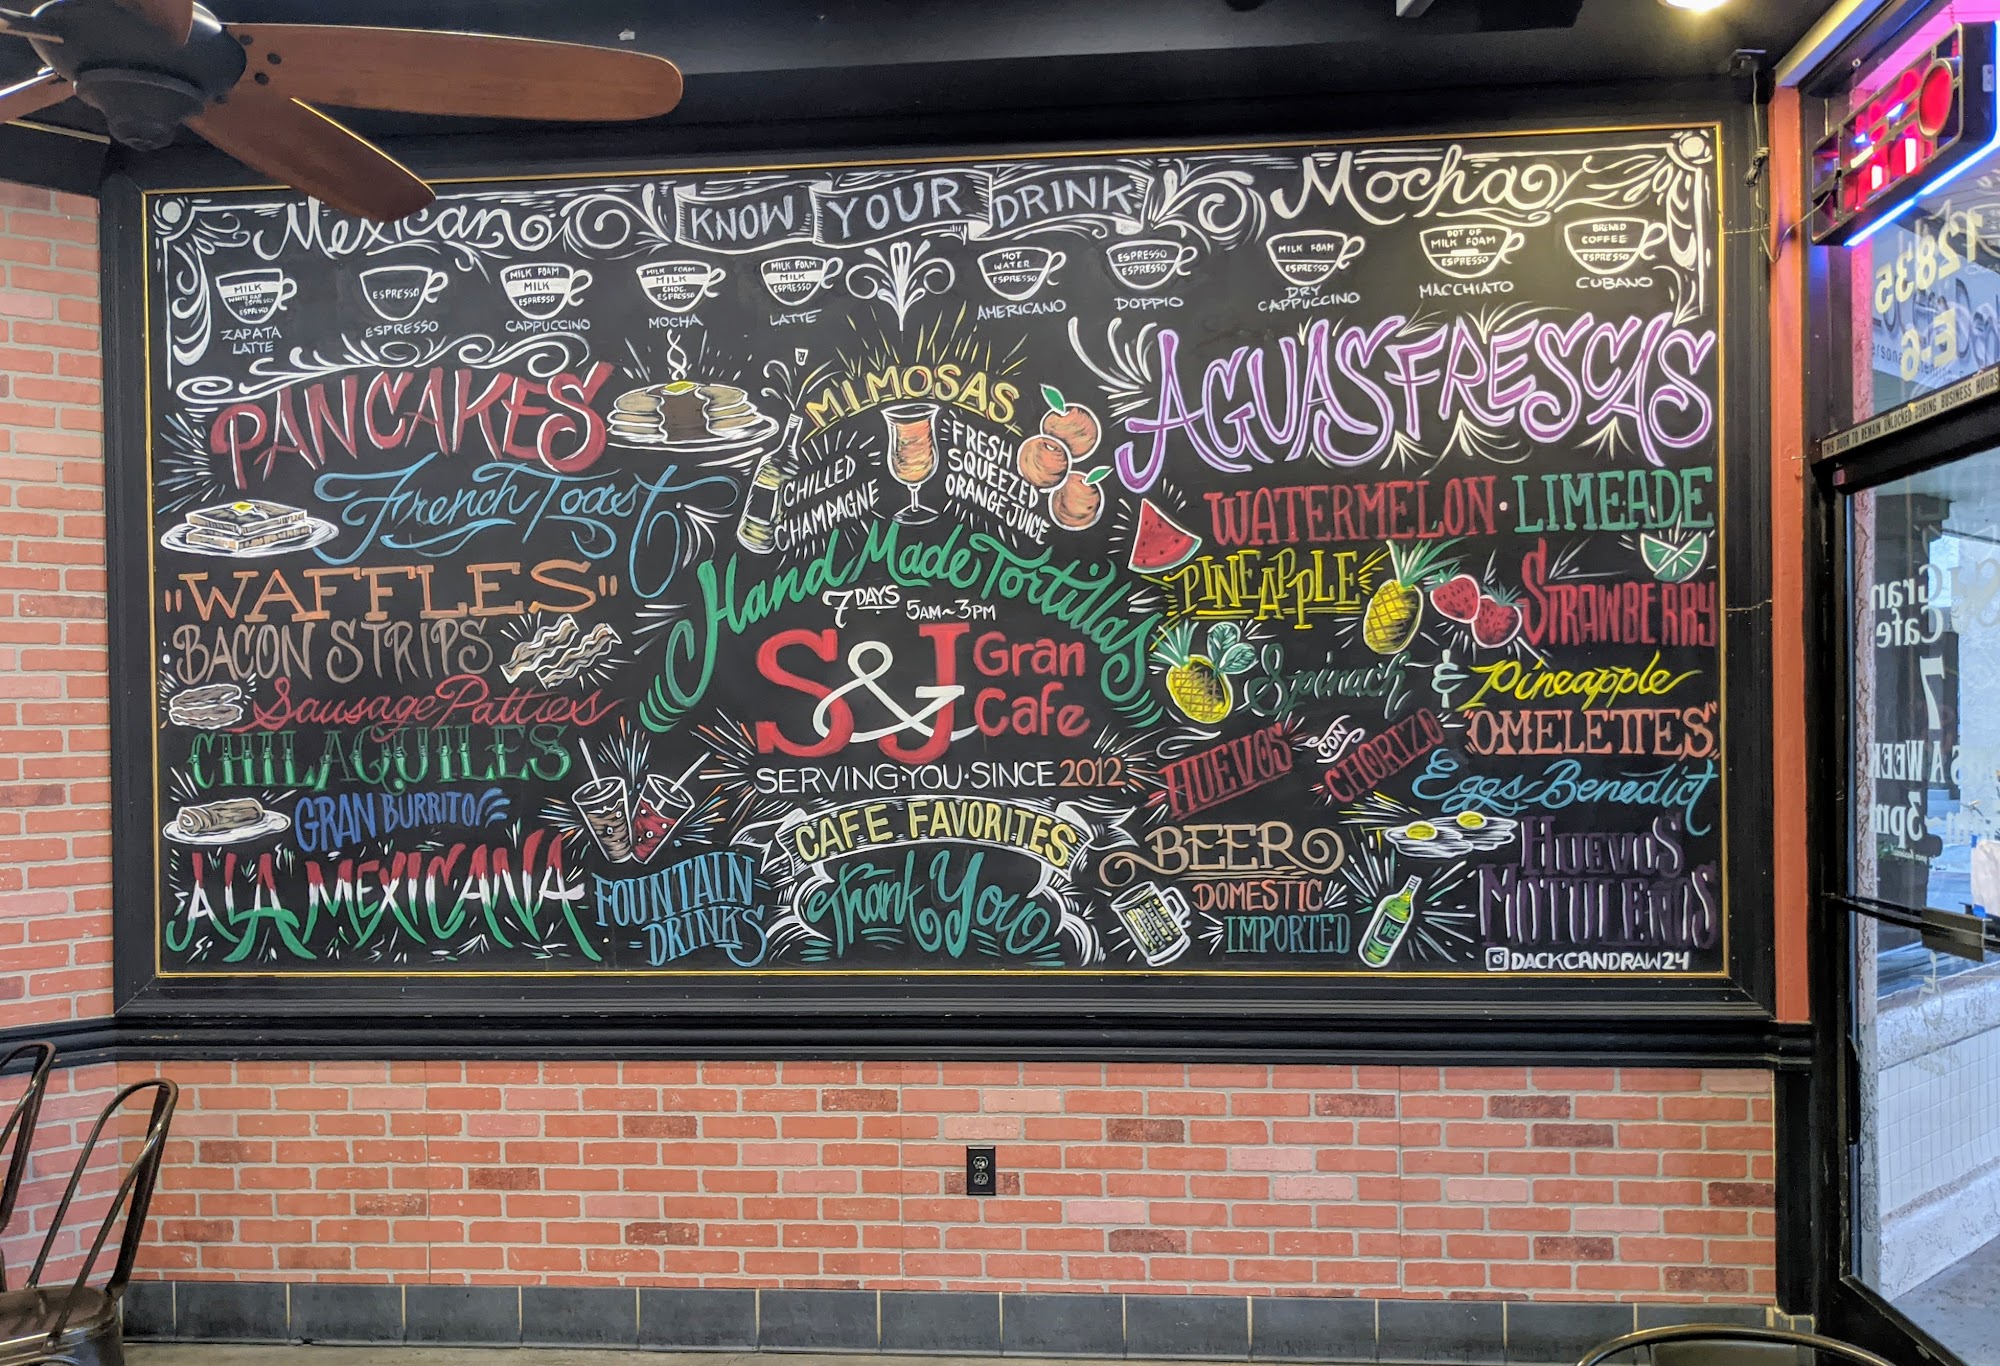 Mexican
KNOW YOUR DRINK
Mocha
MILK
ESPRESSO
ZAPATA
LATTE
ESPRESSO
ESPRESSO
MILK FOAM
MILK
ESPRESSO
CAPPUCCINO
MILK FOAM
MILK
CHOC.
ESPRESSO
MOCHA
MILK FOAM
MILK
ESPRESSO
LATTE
HOT
WATER
ESPRESSO
AMERICANO
ESPRESSO
ESPRESSO
DOPPIO
MILK FOAM
ESPRESSO
DRY
CAPPUCCINO
DOT OF
MILK FOAM
ESPRESSO
MACCHIATO
BREWED
COFFEE
ESPRESSO
CUBANO
PANCAKES
French Toast
"WAFFLES"
BACON STRIPS
Sausage Patties
CHILAQUILES
GRAN BURRITO
A LA MEXICANA
FOUNTAIN
DRINKS
MIMOSAS
CHILLED
CHAMPAGNE
FRESH
SQUEEZED
ORANGE JUICE
Hand Made Tortillas
7 DAYS 5AM~3PM
S&J Gran
Cafe
SERVING·YOU·SINCE 2012
CAFE FAVORITES
Thank You
AGUAS FRESCAS
WATERMELON · LIMEADE
PINEAPPLE
STRAWBERRY
Spinach & Pineapple
HUEVOS CON CHORIZO
"OMELETTES"
Eggs Benedict
BEER
DOMESTIC
IMPORTED
HUEVOS
MOTULEÑOS
DACKCRNDRAW24
THIS DOOR TO REMAIN UNLOCKED DURING BUSINESS HOURS
12835
E-6
Gran
Cafe
7
A WEEK
3pm